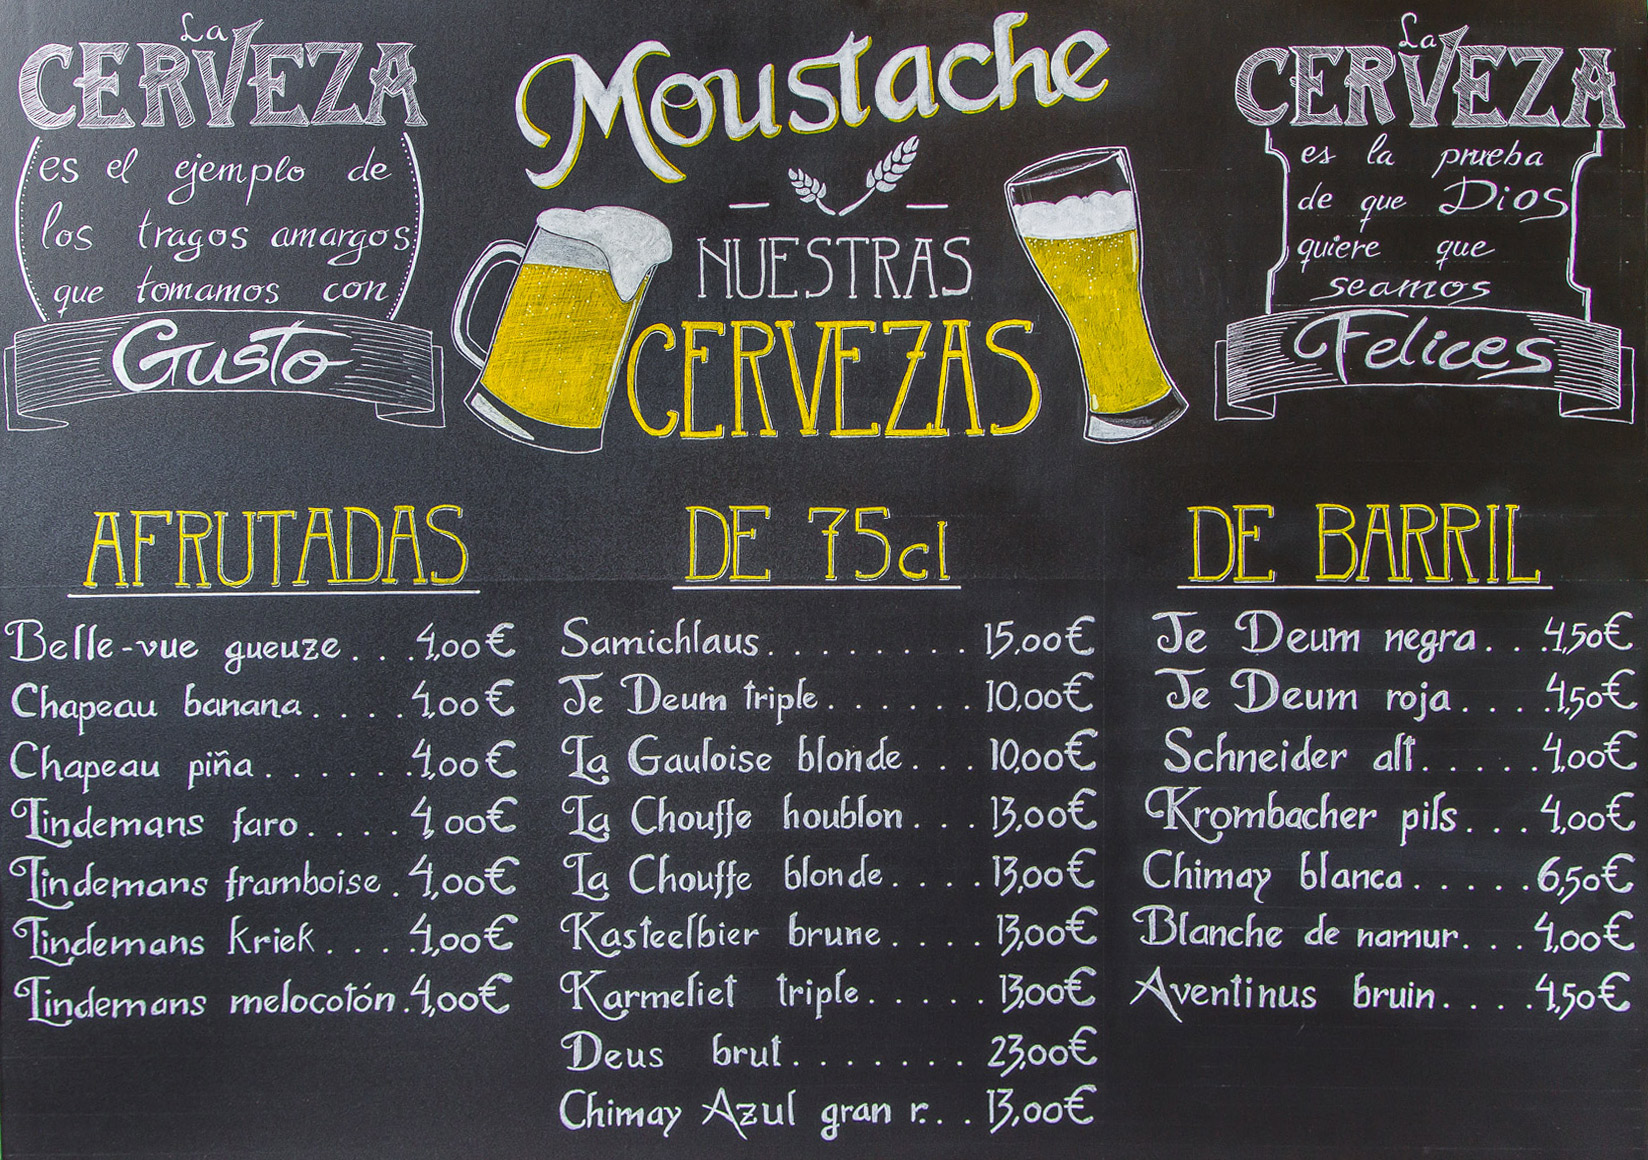 La
CERVEZA
es el ejemplo de
los tragos amargos
que tomamos con
Gusto
Moustache
NUESTRAS
CERVEZAS
La
CERVEZA
es la prueba
de que Dios
quiere que
seamos
Felices
AFRUTADAS
Belle-vue gueuze. . .4,00€
Chapeau banana. . . . .4,00€
Chapeau piña. . . . . . .4,00€
Lindemans faro. . . . 4,00€
Lindemans framboise .4,00€
Lindemans kriek. . . .4,00€
Lindemans melocotón.4,00€
DE 75cl
Samichlaus. . . . . . . . 15,00€
Te Deum triple. . . . . . 10,00€
La Gauloise blonde. . . 10,00€
La Chouffe houblon. . . 13,00€
La Chouffe blonde. . . . 13,00€
Kasteelbier brune. . . . 13,00€
Karmeliet triple. . . . . 13,00€
Deus brut. . . . . . . 23,00€
Chimay Azul gran r. . . 13,00€
DE BARRIL
Te Deum negra. . .4,50€
Te Deum roja. . . .4,50€
Schneider alt. . . . .4,00€
Krombacher pils. . . .4,00€
Chimay blanca. . . . .6,50€
Blanche de namur. . . 4,00€
Aventinus bruin. . . .4,50€